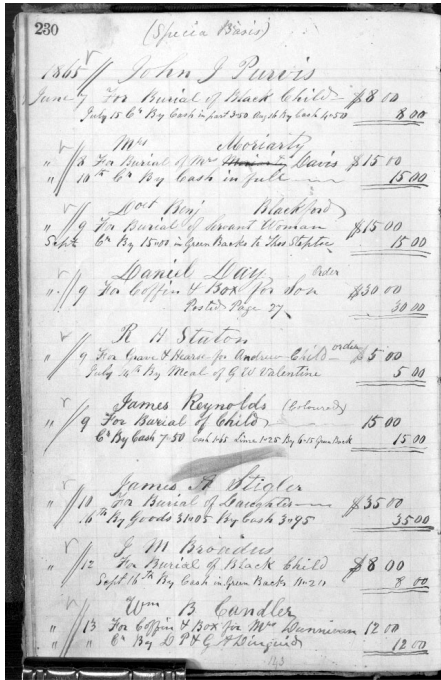 230
(Specia Basis)
1865 // John J Purvis
June 7 For Burial of Black Child $8 00
July 15 Cr By Cash in part 3.50 Aug 26 By Cash 4.50 8 00
Mrs Moriarty
" 8 For Burial of Mrs Davis $15 00
" 10th Cr By Cash in full 15 00
Doct Benj Blackford
" 9 For Burial of Servant Woman $15 00
Sept Cr By 15.00 in Green Backs to Thos Steptoe 15 00
Daniel Day Order
" 9 For Coffin & Box for Son $30 00
Posted Page 27 30 00
R H Staton
" 9 For Grave & Hearse for Andrew Child order $5 00
July 24th By Meal of G W Valentine 5 00
James Reynolds (Coloured)
" 9 For Burial of Child 15 00
Cr By Cash 7.50 Cash 1.25 Lime 1.25 By Green Back 15 00
James Stigler
" 10 For Burial of Daughter $35 00
" 16th By Goods 31.05 By Cash 3.95 35 00
J M Broadus
" 12 For Burial of Black Child $8 00
Sept 16th By Cash in Green Backs 8 00
Wm B Candler
" 13 For Coffin & Box for Mrs Dunnivan 12 00
" " Cr By D P & G A Diuguid 12 00